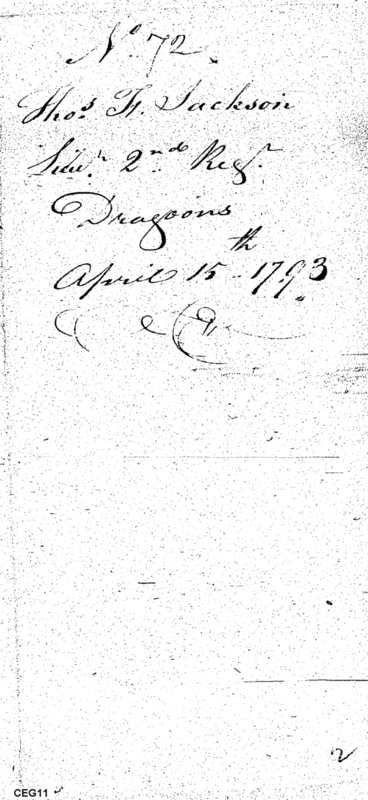 No. 72
Thos. H. Jackson
Lieut. 2nd Regt.
Dragoons
April 15th 1793
2
CEG11